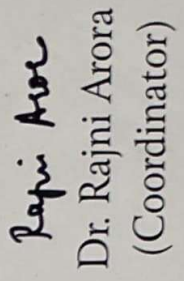 Rajni Aroa
Dr. Rajni Arora
(Coordinator)